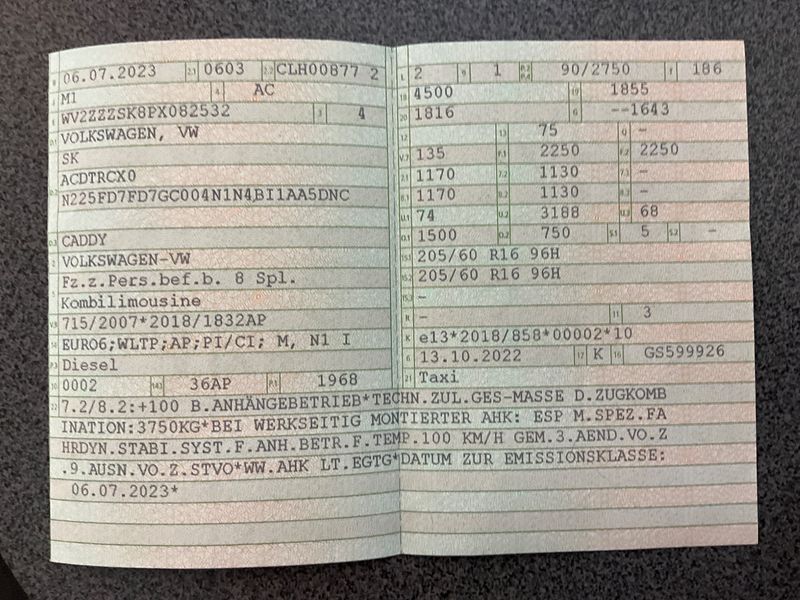 B 06.07.2023 2.1 0603 2.2 CLH00877 2
J M1 4 AC
E WV2ZZZSK8PX082532 3 4
D.1 VOLKSWAGEN, VW
SK
D.2 ACDTRCX0
N225FD7FD7GC004N1N4BI1AA5DNC
D.3 CADDY
2 VOLKSWAGEN-VW
5 Fz.z.Pers.bef.b. 8 Spl.
Kombilimousine
V.9 715/2007*2018/1832AP
14 EURO6;WLTP;AP;PI/CI; M, N1 I
P.3 Diesel
10 0002 14.1 36AP P.1 1968
L 2 9 1 P.2 P.4 90/2750 T 186
18 4500 19 1855
20 1816 G --1643
12 13 75 Q -
V.7 135 F.1 2250 F.2 2250
7.1 1170 7.2 1130 7.3 -
8.1 1170 8.2 1130 8.3 -
U.1 74 U.2 3188 U.3 68
O.1 1500 O.2 750 S.1 5 S.2 -
15.1 205/60 R16 96H
15.2 205/60 R16 96H
15.3 -
R - 11 3
K e13*2018/858*00002*10
6 13.10.2022 17 K 16 GS599926
21 Taxi
22 7.2/8.2:+100 B.ANHÄNGEBETRIEB*TECHN.ZUL.GES-MASSE D.ZUGKOMB
INATION:3750KG*BEI WERKSEITIG MONTIERTER AHK: ESP M.SPEZ.FA
HRDYN.STABI.SYST.F.ANH.BETR.F.TEMP.100 KM/H GEM.3.AEND.VO.Z
.9.AUSN.VO.Z.STVO*WW.AHK LT.EGTG*DATUM ZUR EMISSIONSKLASSE:
06.07.2023*